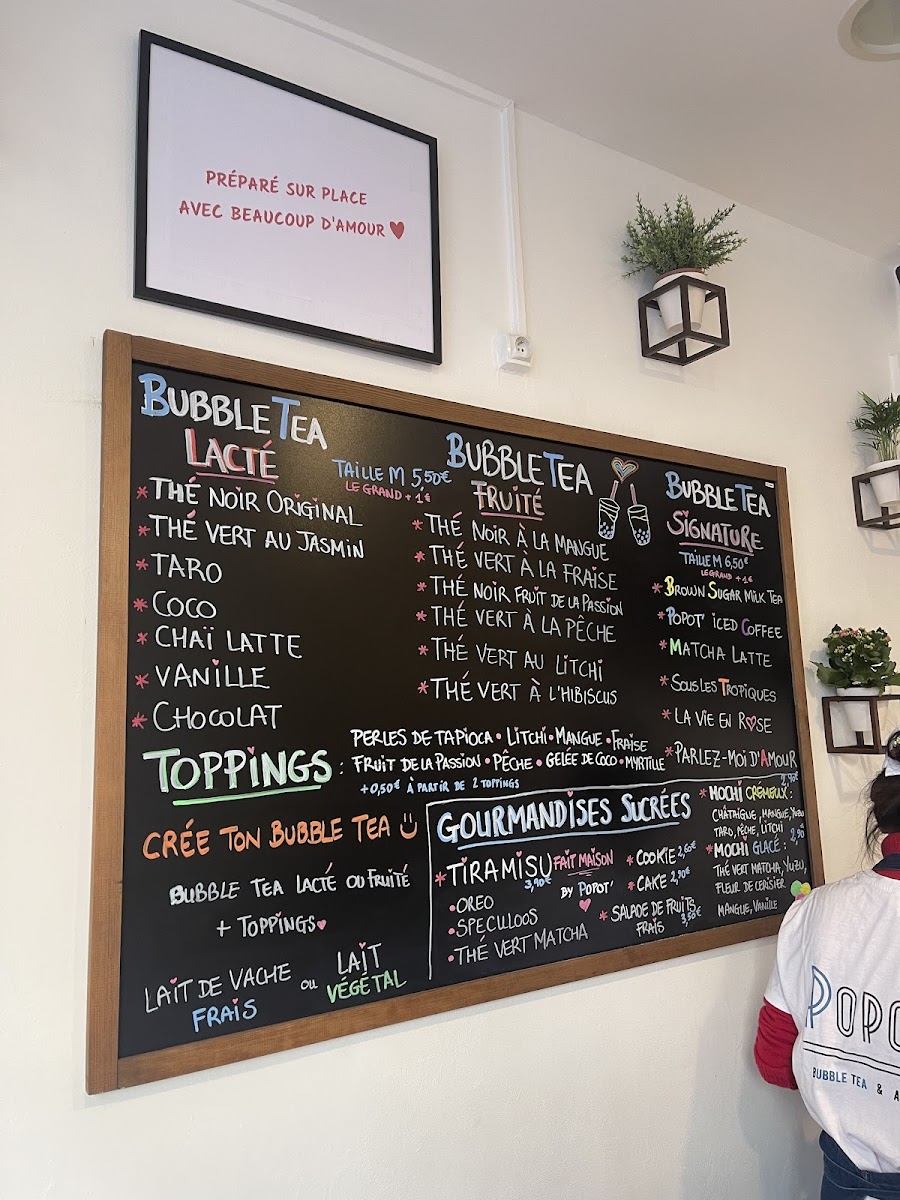 PRÉPARÉ SUR PLACE
AVEC BEAUCOUP D'AMOUR ♥
BUBBLE TEA
LACTÉ
TAILLE M 5,50€
LE GRAND + 1€
* THÉ NOIR ORIGINAL
* THÉ VERT AU JASMIN
* TARO
* COCO
* CHAÏ LATTE
* VANILLE
* CHOCOLAT
BUBBLE TEA
FRUITÉ
* THÉ NOIR À LA MANGUE
* THÉ VERT À LA FRAISE
* THÉ NOIR FRUIT DE LA PASSION
* THÉ VERT À LA PÊCHE
* THÉ VERT AU LITCHI
* THÉ VERT À L'HIBISCUS
BUBBLE TEA
SIGNATURE
TAILLE M 6,50€
LE GRAND + 1€
* BROWN SUGAR MILK TEA
* POPOT' ICED COFFEE
* MATCHA LATTE
* SOUS LES TROPIQUES
* LA VIE EN ROSE
* PARLEZ-MOI D'AMOUR
TOPPINGS :
PERLES DE TAPIOCA • LITCHI • MANGUE • FRAISE
FRUIT DE LA PASSION • PÊCHE • GELÉE DE COCO • MYRTILLE
+0,50€ À PARTIR DE 2 TOPPINGS
CRÉE TON BUBBLE TEA
BUBBLE TEA LACTÉ OU FRUITÉ
+ TOPPINGS ♥
LAIT DE VACHE
FRAIS
OU
LAIT
VÉGÉTAL
GOURMANDISES SUCRÉES
* TIRAMISU FAIT MAISON
3,90€
BY POPOT'
• OREO
• SPECULOOS
• THÉ VERT MATCHA
* COOKIE 2,60€
* CAKE 2,90€
* SALADE DE FRUITS
FRAIS 3,50€
* MOCHI CRÉMEUX :
CHÂTAIGNE, MANGUE, YUZU
TARO, PÊCHE, LITCHI
* MOCHI GLACÉ :
THÉ VERT MATCHA, YUZU,
FLEUR DE CERISIER
MANGUE, VANILLE
POPO
BUBBLE TEA & A